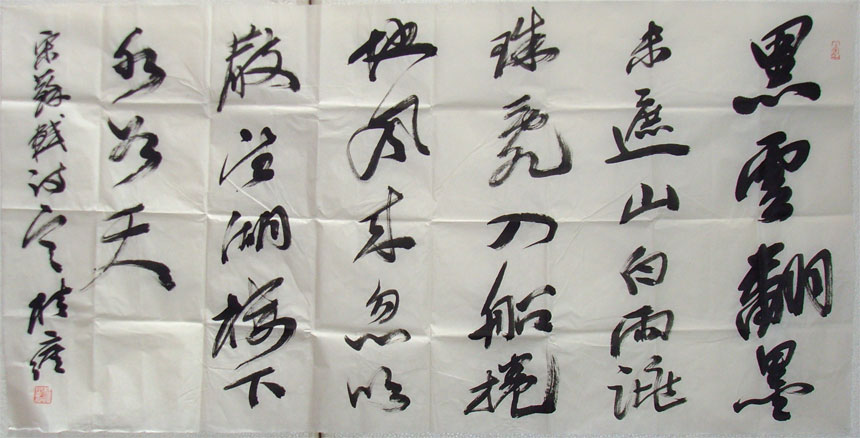 黑雲翻墨
未遮山白雨跳
珠亂入船捲
地風来忽吹
散望湖樓下
水如天
宋蘇軾詩